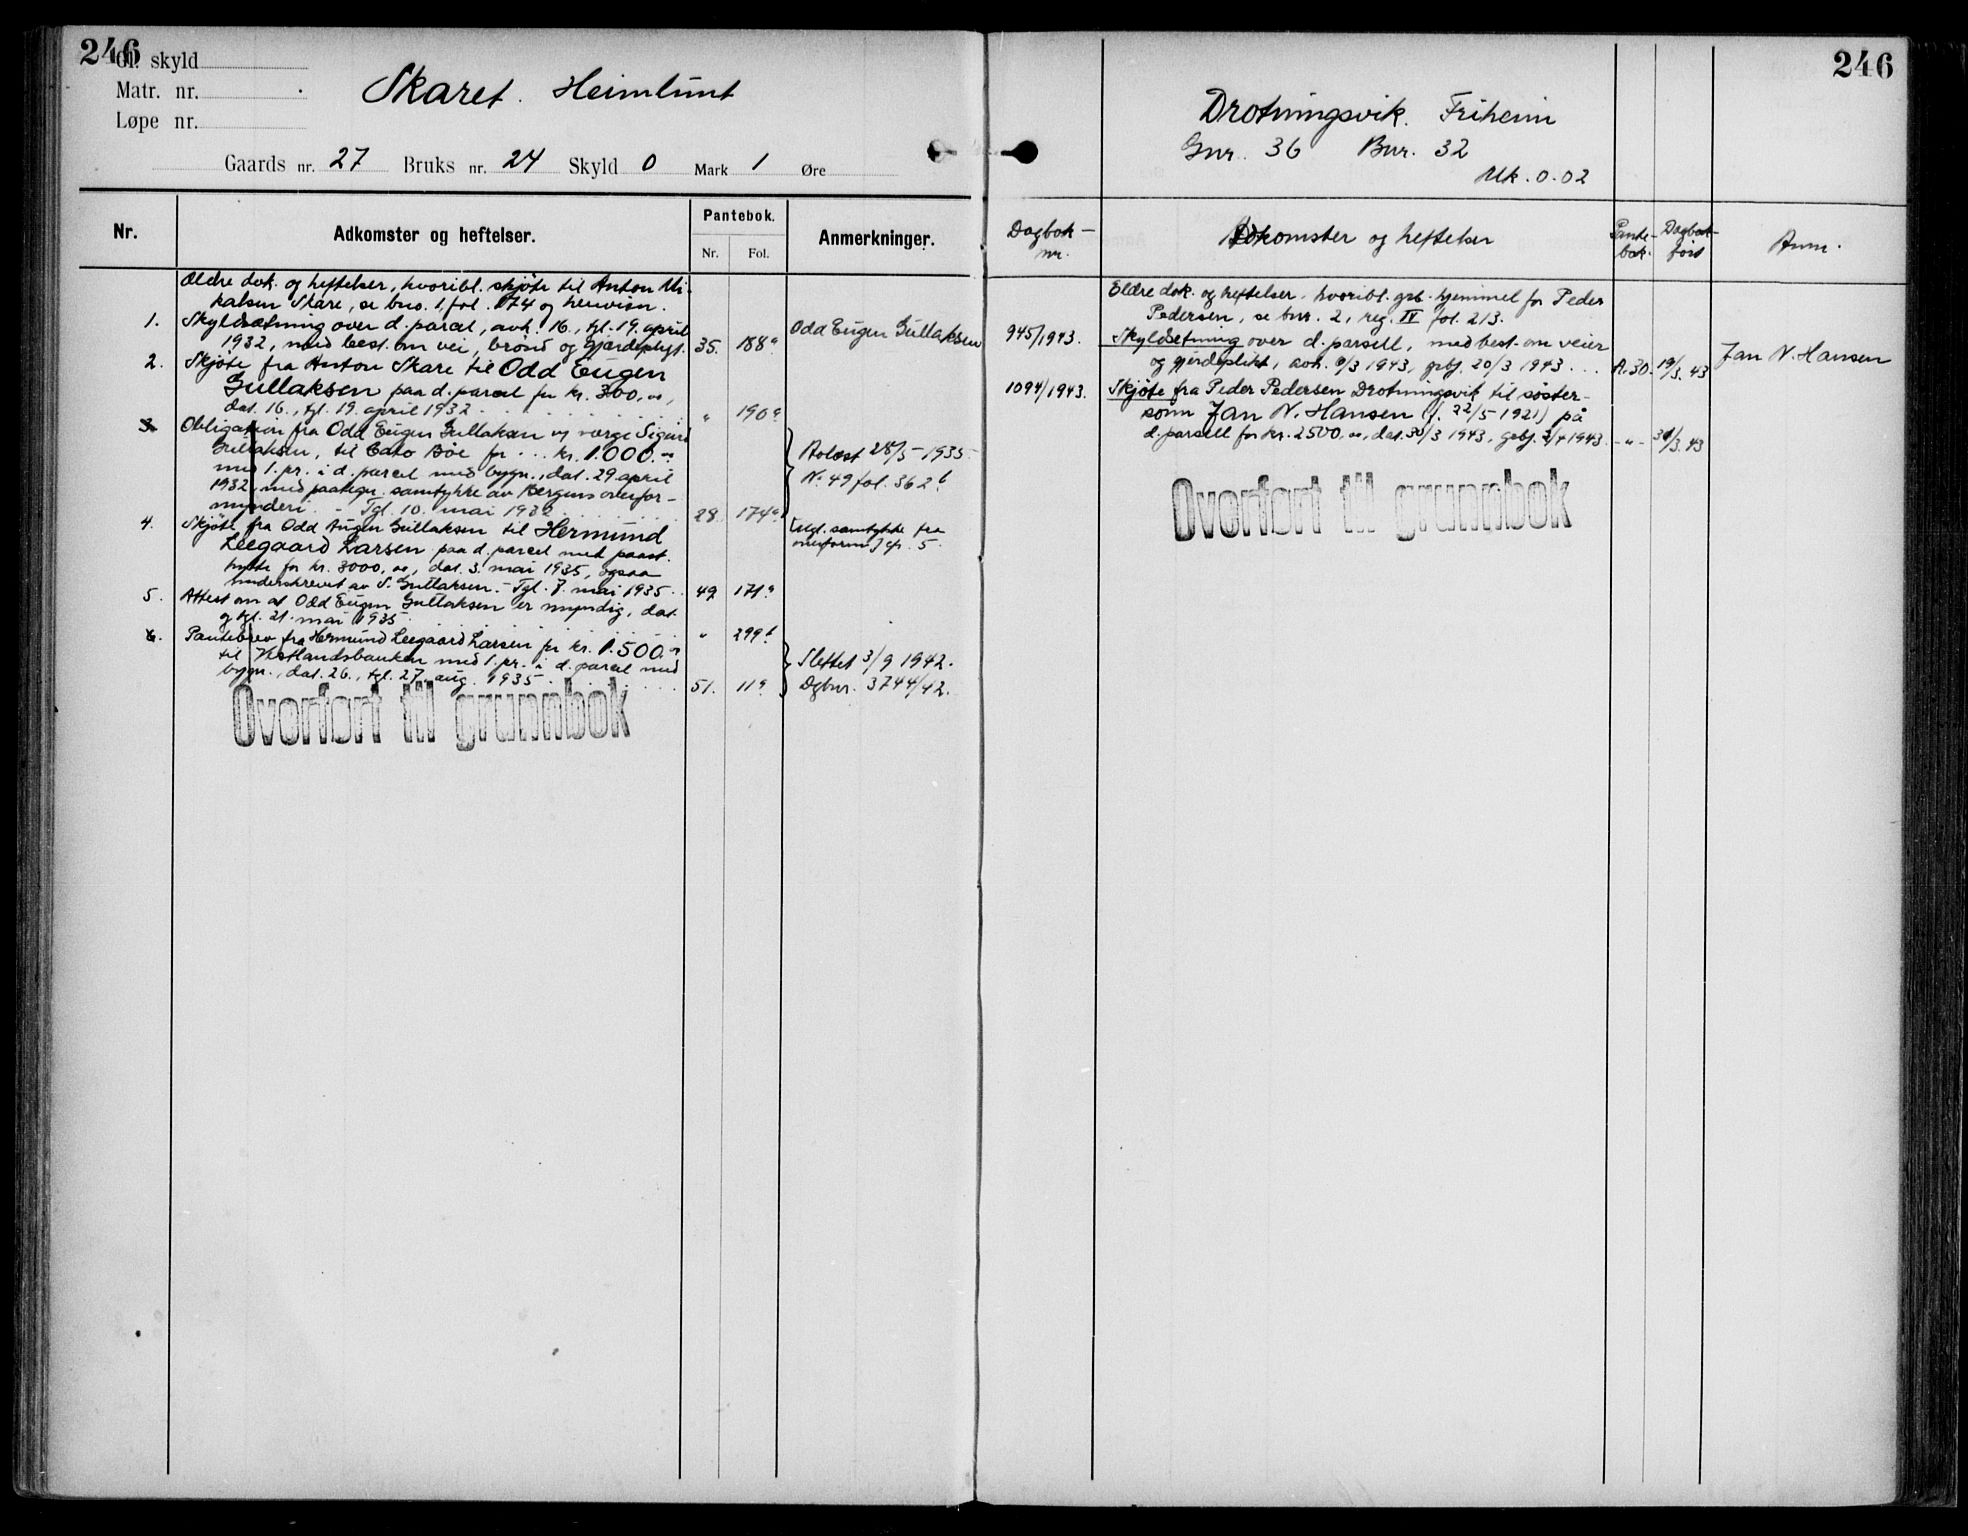 246
Gl. skyld
Matr. nr.
Løpe nr.
Skaret. Heimlunt
Gaards nr. 27 Bruks nr. 24 Skyld 0 Mark 1 Øre
Nr. Adkomster og heftelser. Pantebok. Anmerkninger.
Nr. Fol.
Ældre dok. og heftelser, hvoribl. skjöte til Anton Mi-
kalsen Skare, se bno. 1, fol. 174 og henvisn.
1. Skyldsætning over d. parcel, avh. 16., tgl. 19. april
1932, med best. om vei, brönd og gjærdeplygt. 35. 188ª Odd Eugen Gullaksen
2. Skjöte fra Anton Skare til Odd Eugen
Gullaksen paa d. parcel for kr. 300,00,
dat. 16., tgl. 19. april 1932 . . . " 190ª
3. Obligation fra Odd Eugen Gullaksen og værge Sigurd
Gullaksen, til Cato Böe for . . . kr. 1.000.00
med 1. pr. i d. parcel med bygn., dat. 29 april
1932, med paategn. samtykke av Bergens overfor-
mynderi. - Tgl. 10. mai 1932 . . . 28. 174ª
Avlæst 28/5-1935-
N. 49 fol. 362b
4. Skjöte fra Odd Eugen Gullaksen til Hermund
Leegaard Larsen paa d. parcel med paast.
hytte for kr. 3000,00, dat. 3. mai 1935, ogsaa
underskrevet av S. Gullaksen. - Tgl. 7. mai 1935 . . 49 171ª
[Mgl. samtykke fra
overform] cfr. 5.
5. Attest om at Odd Eugen Gullaksen er myndig, dat.
og tgl. 21. mai 1935 . . . " 299b
6. Pantebrev fra Hermund Leegaard Larsen for kr. 1.500.00
til Vestlandsbanken med 1. pr. i d. parcel med
bygn., dat. 26., tgl. 27. aug. 1935 . . . 51. 11ª
Slettet 3/9 1942.
Dgbnr. 3744/42.
Overført til grunnbok
246
Drotningsvik. Friheim
Gnr. 36 Bnr. 32
Mk. 0.02
Dagbok-
nr.
Adkomster og heftelser
Pante-
bok.
Dagbok-
ført
Anm.
Eldre dok. og heftelser, hvoribl. grb. hjemmel for Peder
Pedersen, se bnr. 2, reg. IV fol. 213.
945/1943. Skyldsetning over d. parsell, med best. om veier
og gjerdeplikt, avh. 9/3 1943, grbf. 20/3 1943 . . . A.30. 19/3. 43 Jan N. Hansen
1094/1943. Skjøte fra Peder Pedersen Drotningsvik til søster-
sønn Jan N. Hansen (f. 22/5-1921) på
d. parsell for kr. 2500,00, dat. 30/3 1943, grbf. 2/4 1943. - " - 31/3. 43
Overført til grunnbok